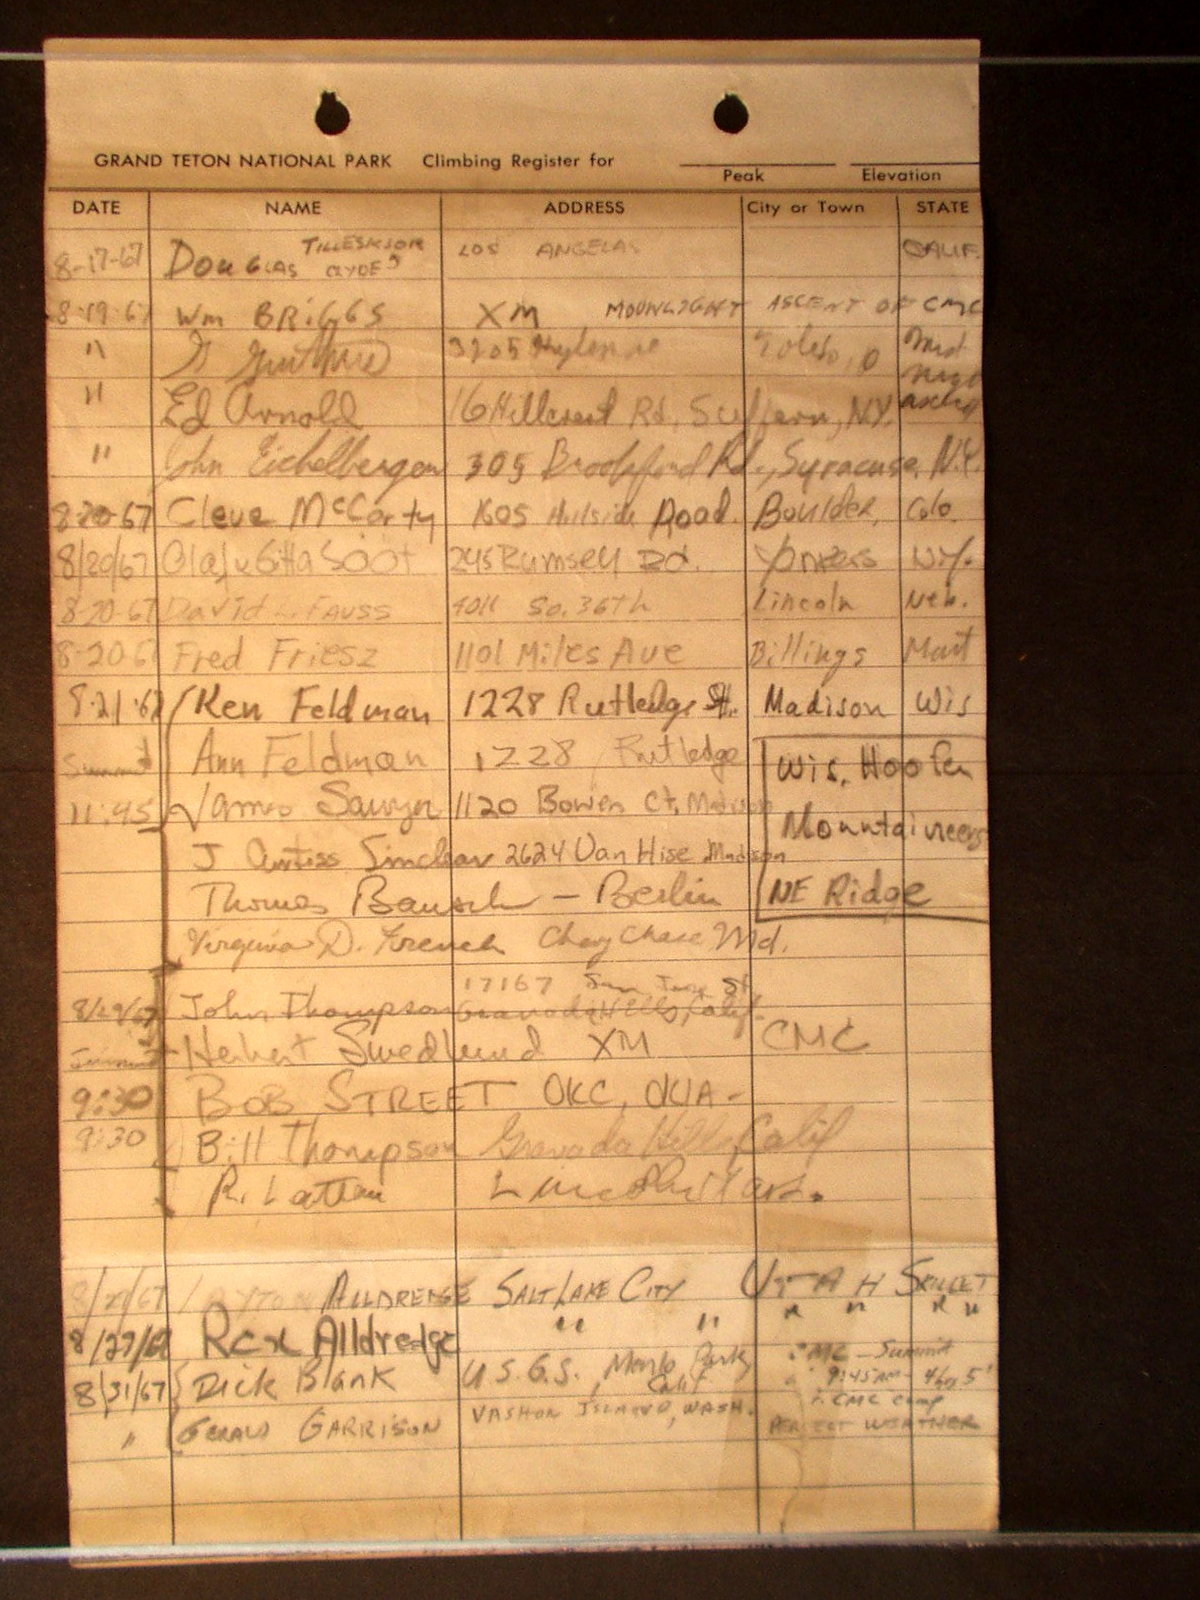 GRAND TETON NATIONAL PARK Climbing Register for Peak Elevation
DATE NAME ADDRESS City or Town STATE
8-17-67 DOUGLAS CLYDE LOS ANGELAS CALIF.
8-19-67 Wm BRIGGS XM MOONLIGHT ASCENT OF CMC
" 3205 Toledo, O Mid
night
" Ed Arnold 16 Hillcrest Rd, Suffern, N.Y. ascent
" John Eichelberger 305 Brookford Rd., Syracuse, N.Y.
8-20-67 Cleve McCarty 1605 Hillside Road. Boulder, Colo.
8/20/67 Olaf & Gitta Soot 245 Rumsey Rd. Yonkers N.Y.
8-20-67 David L. Fauss 4011 So. 36th Lincoln Neb.
8-20-67 Fred Friesz 1101 Miles Ave Billings Mont
8-21-67 Ken Feldman 1228 Rutledge St. Madison Wis
Summit Ann Feldman 1228 Rutledge Wis. Hoofer
11:45 James Sawyer 1120 Bowen Ct, Madison Mountaineers
J Curtiss Sinclear 2624 Van Hise Madison
Thomas Bausch - Berlin NE Ridge
Virginia D. French Chevy Chase Md.
17167 San Jose St
8/29/67 John Thompson Granada Hills, Calif.
Summit Herbert Swedlund XM CMC
9:30 BOB STREET OKC, OKLA-
9:30 Bill Thompson Granada Hills, Calif
R. Lattau
ALLDREDGE SALT LAKE CITY UTAH SKILLET
8/27/68 Rex Alldredge " " " " " "
8/31/67 Dick Blank U.S.G.S., Menlo Park, Calif CMC - Summit
9:45 AM
CMC camp
" GERALD GARRISON VASHON ISLAND, WASH. PERFECT WEATHER